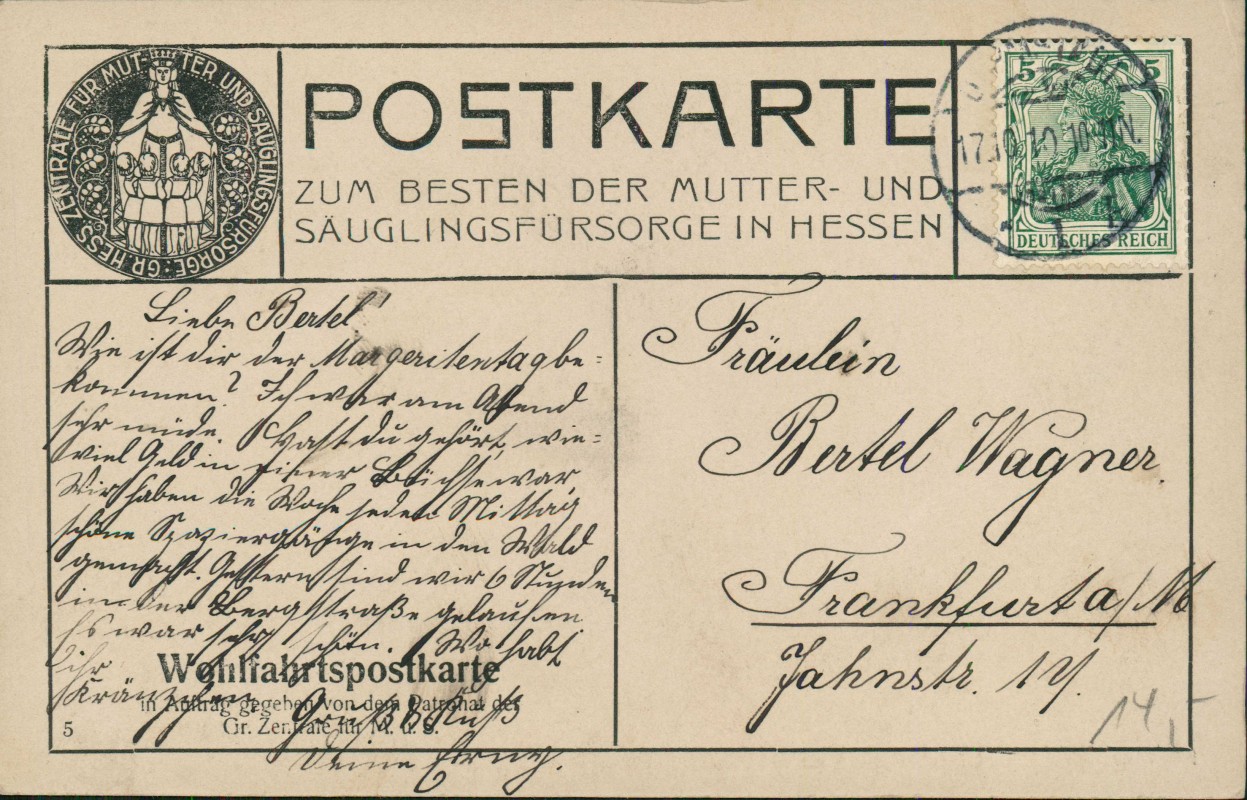 ZENTRALE FÜR MUTTER UND SÄUGLINGSFÜRSORGE · GR. HESS.
POSTKARTE
ZUM BESTEN DER MUTTER- UND
SÄUGLINGSFÜRSORGE IN HESSEN
5 5
DEUTSCHES REICH
17.10.10. 10
Liebe Bertel!
Wie ist dir der Margeritentag be=
kommen? Ich war am Abend
sehr müde. Hast du gehört, wie=
viel Geld in seiner Büchse war
Wir haben die Woche jeden Mittag
schöne Spaziergänge in den Wald
gemacht. Gestern sind wir 6 Stunden
in der Bergstraße gelaufen
Es war sehr schön. Wo habt
ihr
Kränzchen.
Gruß & Kuß
Deine Erny.
Wohlfahrtspostkarte
in Auftrag gegeben von dem Patronat der
Gr. Zentrale für M. u. S.
5
Fräulein
Bertel Wagner
Frankfurt a/M
Jahnstr. 14.
14,-